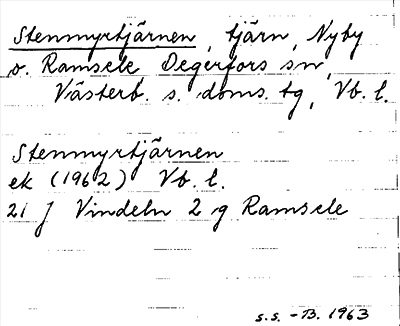 Stenmyrtjärnen, tjärn, Nyby
o. Ramsele Degerfors sn,
Västerb. s. doms. tg, Vb. l.
Stenmyrtjärnen
ek (1962) Vb. l.
21 J Vindeln 2 g Ramsele
s.s. - B. 1963